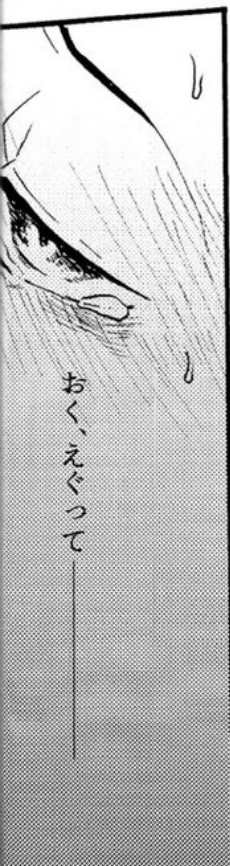 おく、えぐって――